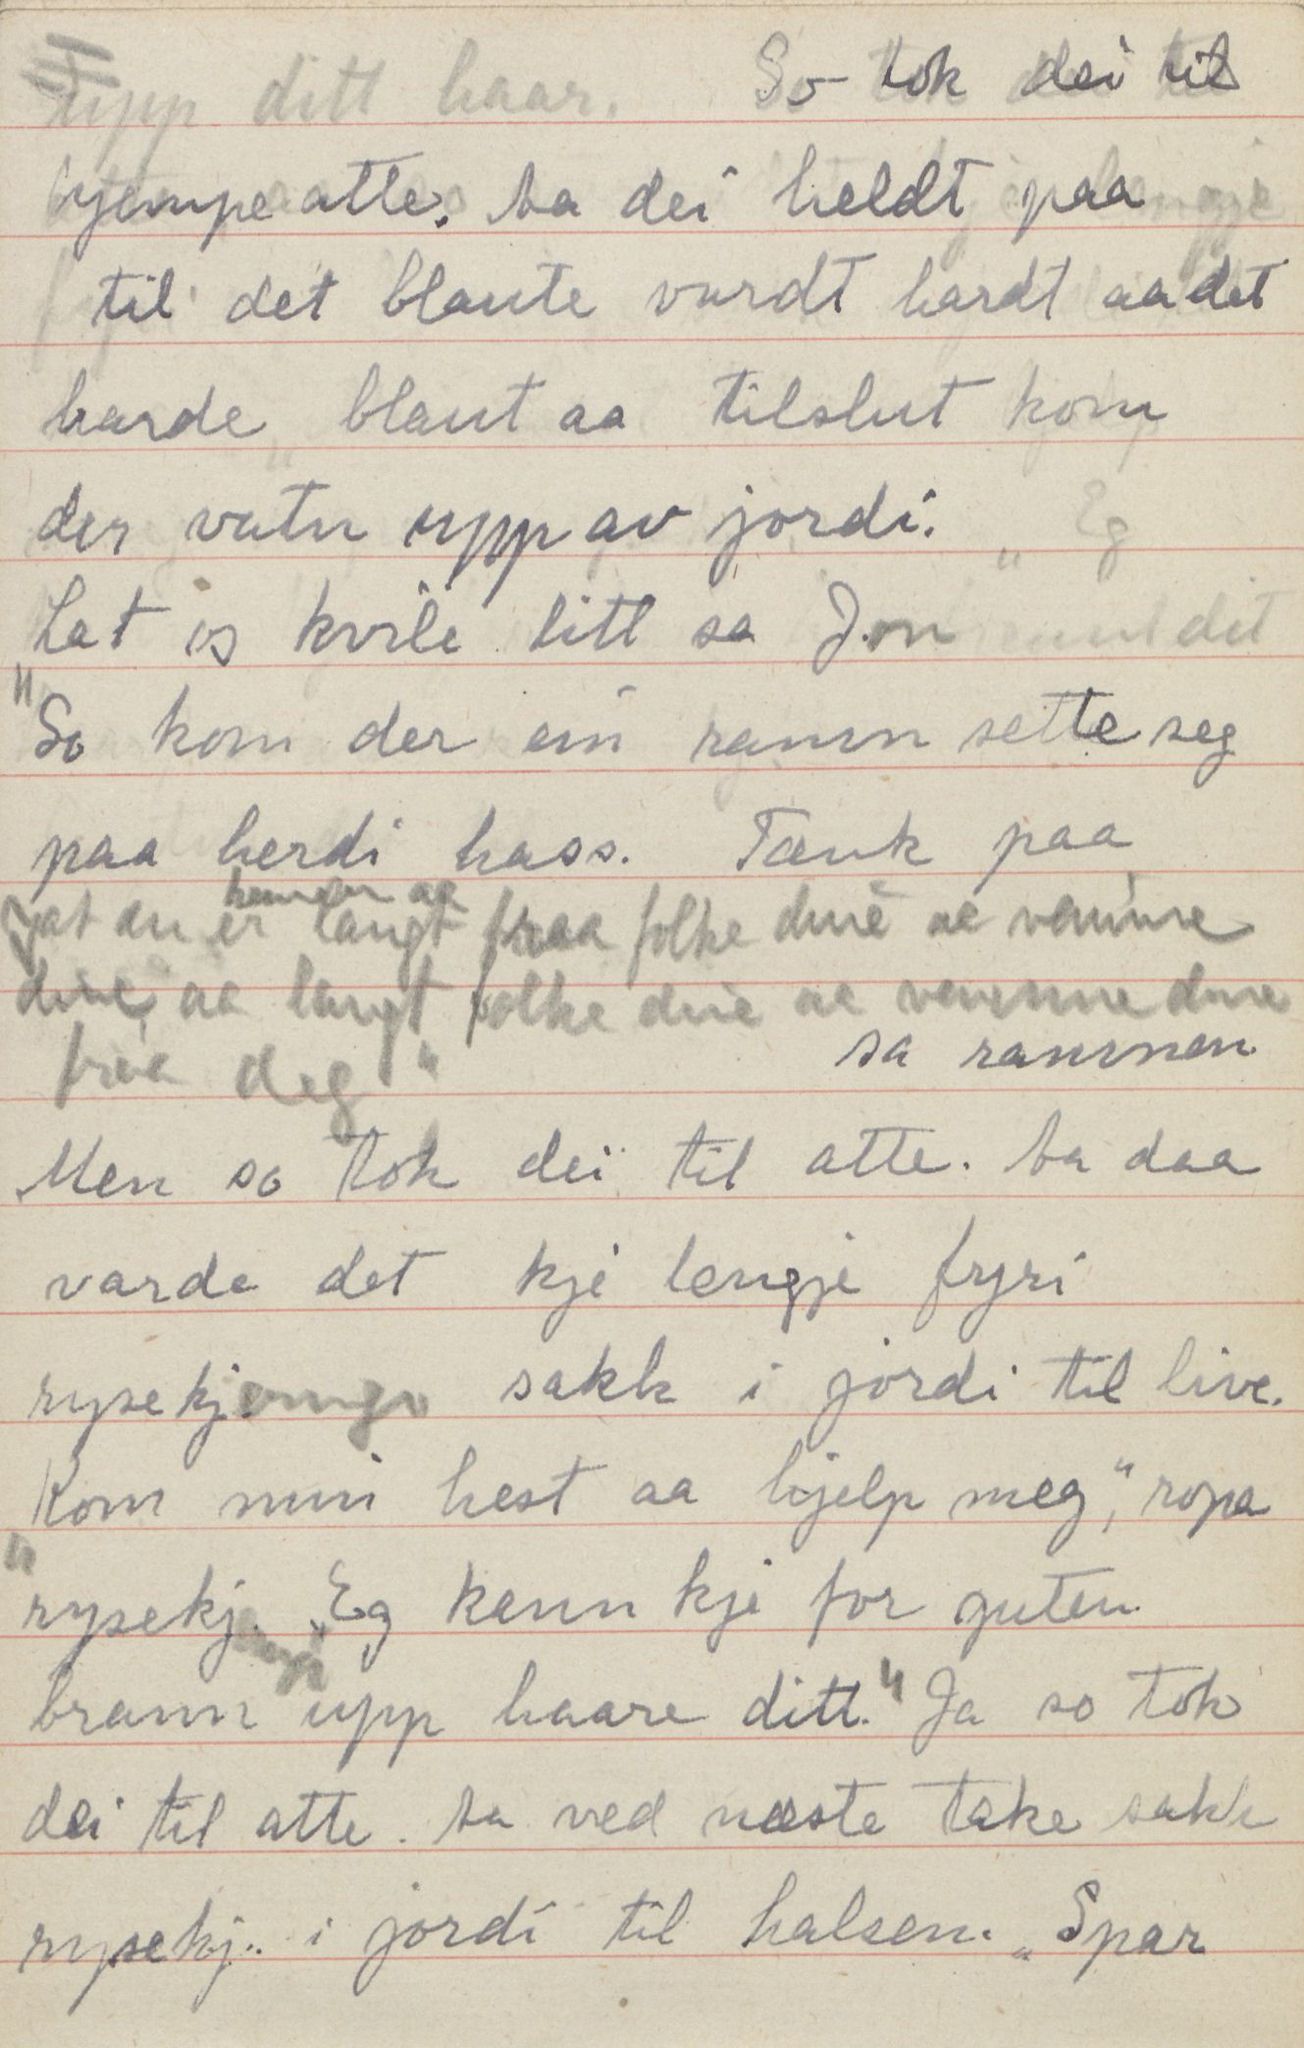 upp ditt haar. So tok dei til
kjempe atte. Aa dei heldt paa
til det blaute vardt hardt aa det
harde blaut aa tilslut kom
der vatn upp av jordi.
"Lat os kvile litt sa Jon
So kom der ein ramn sette seg
paa herdi hass. Tænk paa
at du er langt fraa folke dine aa venine
dine, aa langt folke dine aa venenne dine
fraa deg" sa ramnen
Men so tok dei til atte. Aa daa
varde det kje lengje fyri
rysekjempo sakk i jordi til live.
"Kom min hest aa hjelp meg", ropa
rysekj. "Eg kann kje for guten
brann upp haare ditt." Ja so tok
dei til atte. Aa ved næste take sakk
rysekj. i jordi til halsen. "Spar